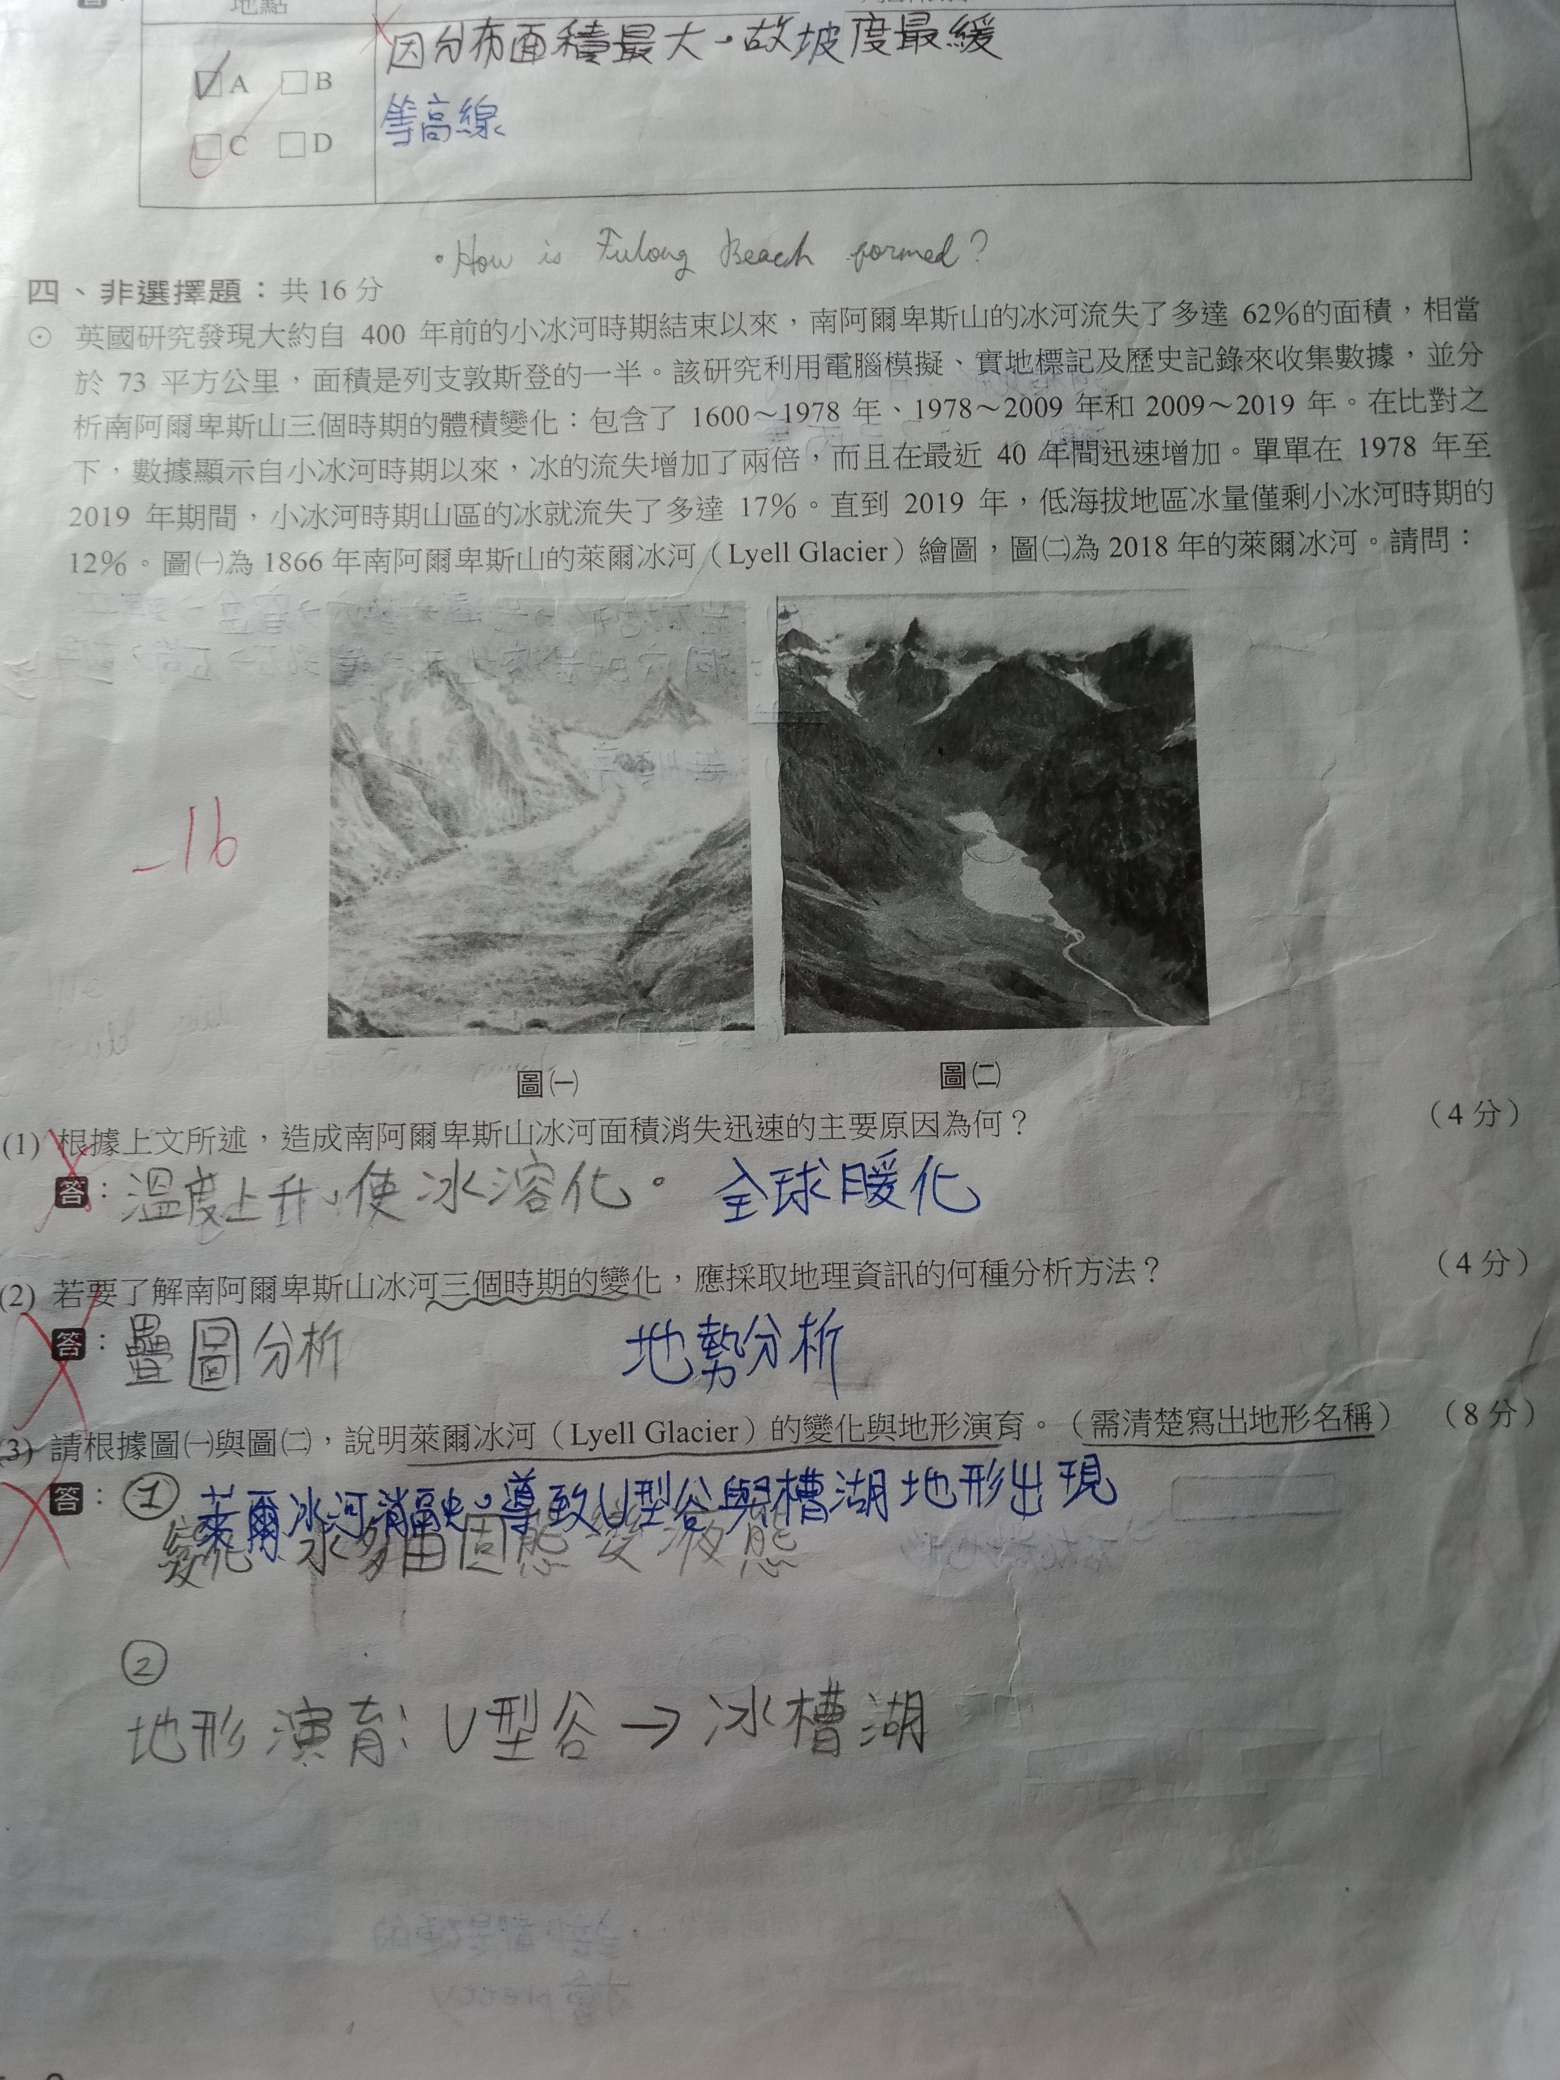 地點
因分布面積最大，故坡度最緩
A B
等高線
C D
• How is Fulong Beach formed?
四、非選擇題：共 16 分
⊙ 英國研究發現大約自 400 年前的小冰河時期結束以來，南阿爾卑斯山的冰河流失了多達 62%的面積，相當
於 73 平方公里，面積是列支敦斯登的一半。該研究利用電腦模擬、實地標記及歷史記錄來收集數據，並分
析南阿爾卑斯山三個時期的體積變化：包含了 1600～1978 年、1978～2009 年和 2009～2019 年。在比對之
下，數據顯示自小冰河時期以來，冰的流失增加了兩倍，而且在最近 40 年間迅速增加。單單在 1978 年至
2019 年期間，小冰河時期山區的冰就流失了多達 17%。直到 2019 年，低海拔地區冰量僅剩小冰河時期的
12%。圖㈠為 1866 年南阿爾卑斯山的萊爾冰河（Lyell Glacier）繪圖，圖㈡為 2018 年的萊爾冰河。請問：
-16
圖㈠ 圖㈡
(1) 根據上文所述，造成南阿爾卑斯山冰河面積消失迅速的主要原因為何？ （4 分）
答：溫度上升，使冰溶化。 全球暖化
(2) 若要了解南阿爾卑斯山冰河三個時期的變化，應採取地理資訊的何種分析方法？ （4 分）
答：疊圖分析 地勢分析
(3) 請根據圖㈠與圖㈡，說明萊爾冰河（Lyell Glacier）的變化與地形演育。（需清楚寫出地形名稱） （8 分）
答：① 萊爾冰河消融，導致U型谷與槽湖地形出現
變化：冰多由固態變液態
②
地形演育：U型谷→冰槽湖